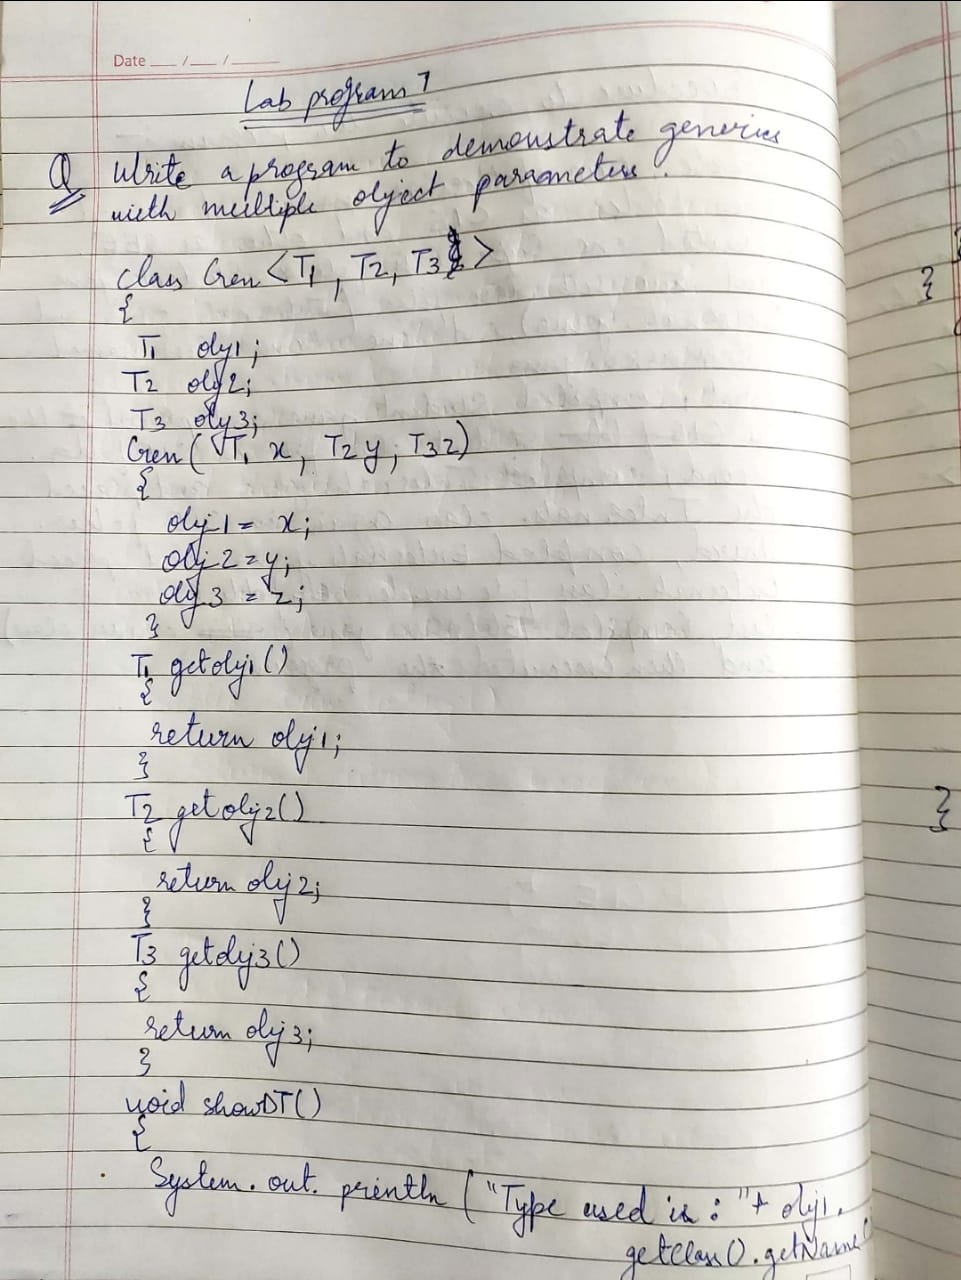 Date __ / __ / ____
Lab program 7
Q Write a program to demonstrate generics
with multiple object parameters.
class Gen <T1, T2, T3>
{
T1 obj1;
T2 obj2;
T3 obj3;
Gen( T1 x, T2 y, T3 z)
{
obj1 = x;
obj2 = y;
obj3 = z;
}
T1 getobj1()
{
return obj1;
}
T2 getobj2()
{
return obj2;
}
T3 getobj3()
{
return obj3;
}
void showDT()
{
System.out.println ("Type used is : "+ obj1.
getClass().getName(
}
}